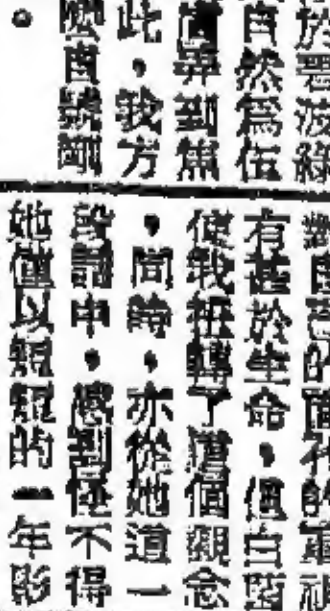 於碧波綠
自然為伍
弄到
此,我方
麼自號剛
。
對自己的面孔的重視
有甚於生命,但白
使我扭轉了這個觀念
,同時,亦從她這一
段中,感到怪不得
她僅以短短的一年影